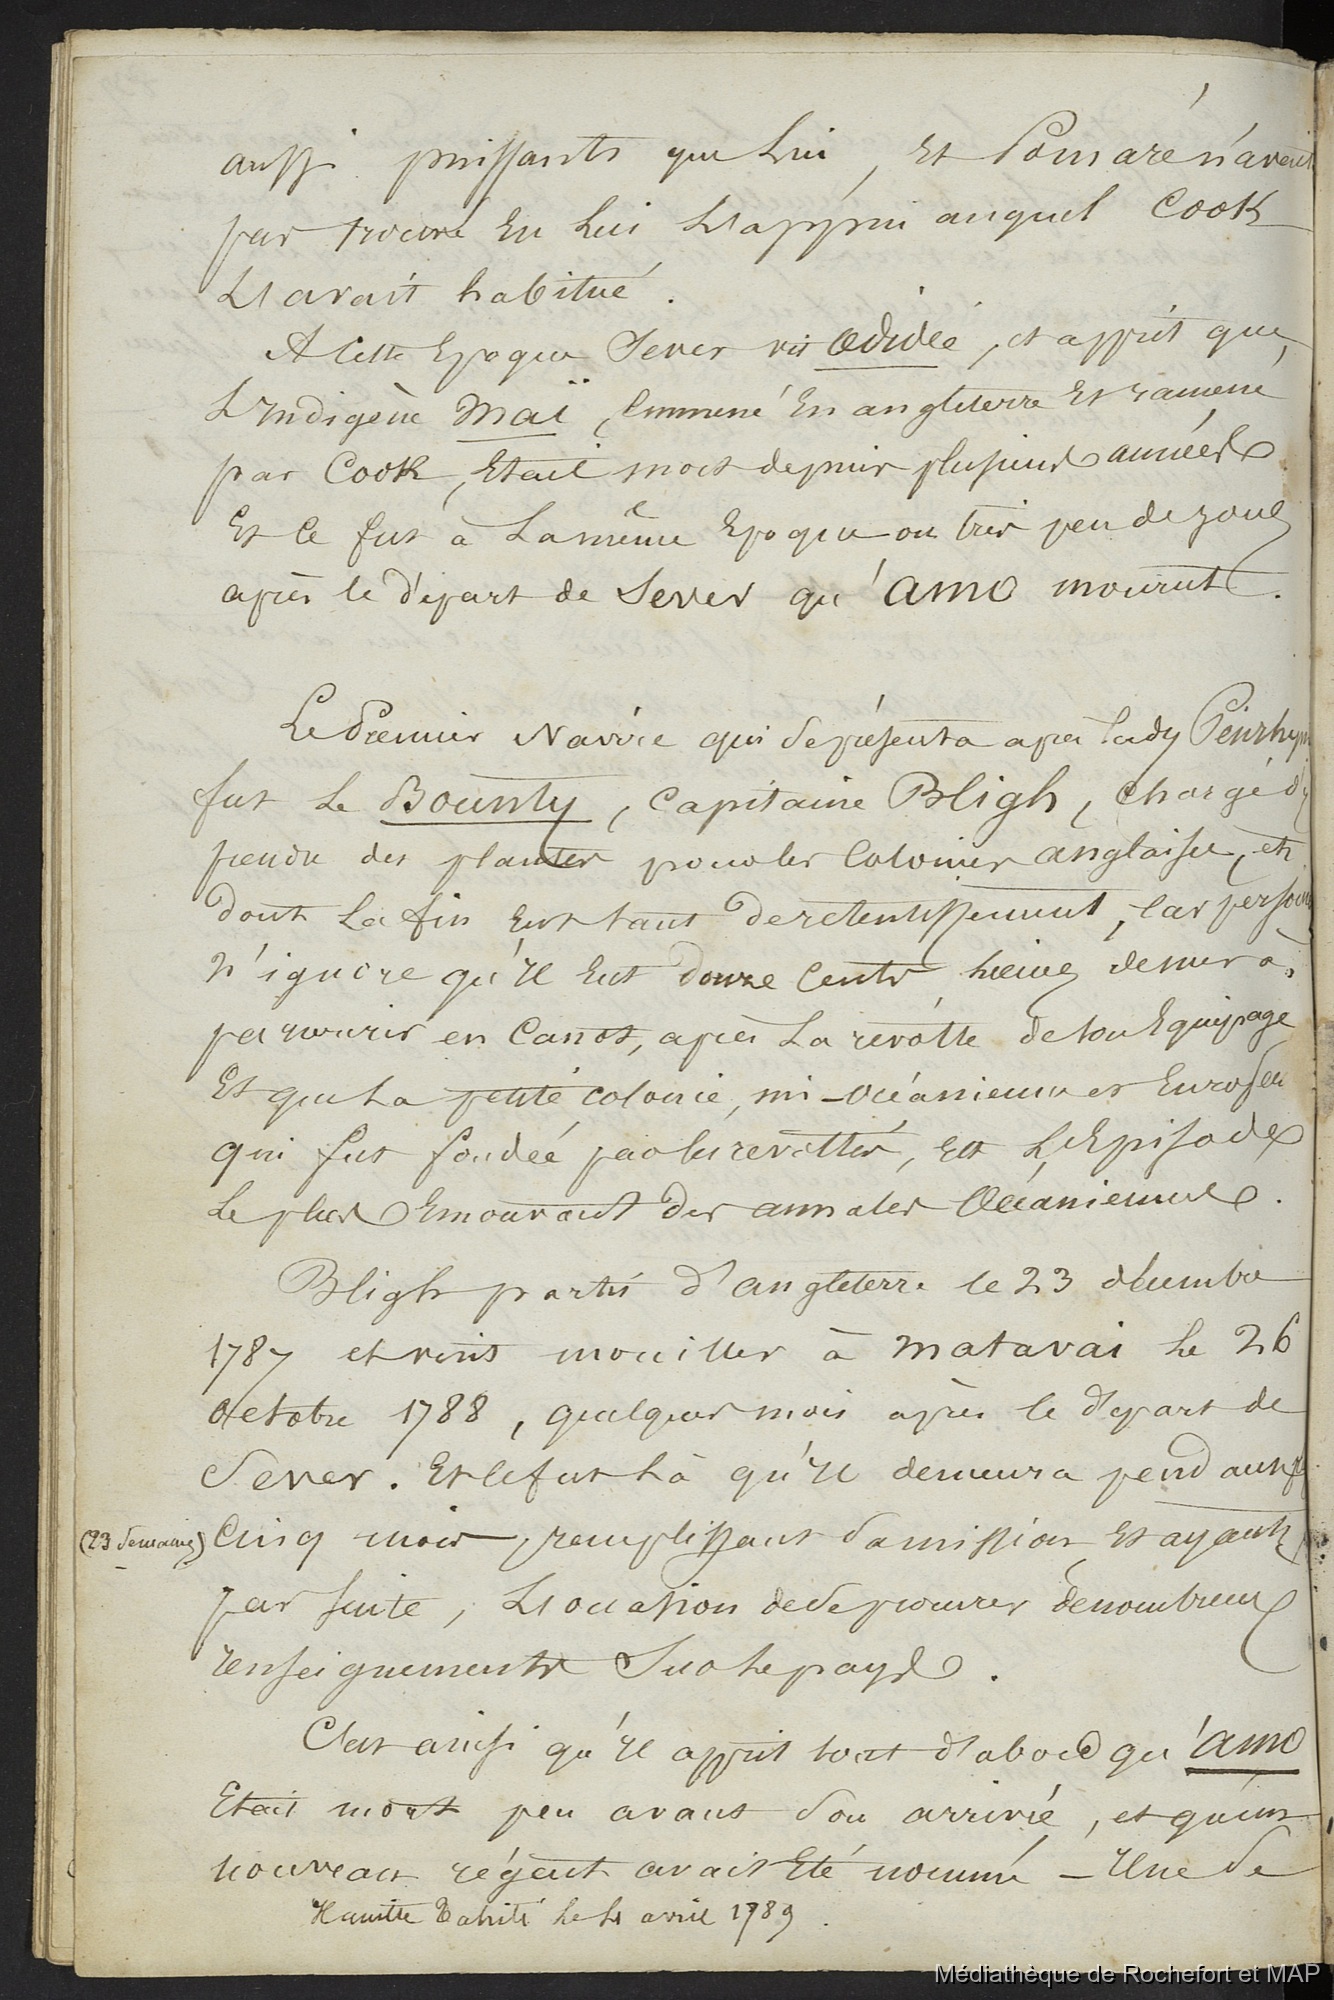 aussi puissants que Lui, Et Pomaré n'avait
pas trouvé En Lui L'appui auquel Cook
L'avait habitué.
A Cette Epoque Sever vit Œdidée, et apprit que
L'Indigène Maï, Emmené En angleterre Et ramené
par Cook, Etait mort depuis plusieurs années
Et Ce fut à La même Epoque ou très peu de jours
après le départ de Sever qu'amo mourut.
Le Premier Navire qui se présenta après Lady Penrhyn
fut Le Bounty, Capitaine Bligh, Chargé d'y
prendre des plantes pour les Colonies anglaises, et
dont La fin Eut tant de retentissement, Car personne
N'ignore qu'Il Eut douze Cents lieues de mer à
parcourir en Canot, après La révolte de son Equipage
Et que La petite colonie, mi-océanienne et Européen
qui fut fondée par les révoltés, Est L'Episode
Le plus Emouvant des annales Océaniennes.
Bligh partit d'angleterre le 23 décembre
1787 et vint mouiller à Matavai Le 26
octobre 1788, quelques mois après le départ de
Sever. Et Ce fut Là qu'Il demeura pendant
(23 Semaines) Cinq mois, remplissant sa mission, Et ayant
par suite, L'occasion de se procurer de nombreux
renseignements Sur Le pays.
C'est ainsi qu'Il apprit tout d'abord qu'amo
Etait mort peu avant son arrivée, et qu'un
nouveau régent avait Eté nommé - Une de
Il quitte Tahiti Le 4 avril 1789.
Médiathèque de Rochefort et MAP